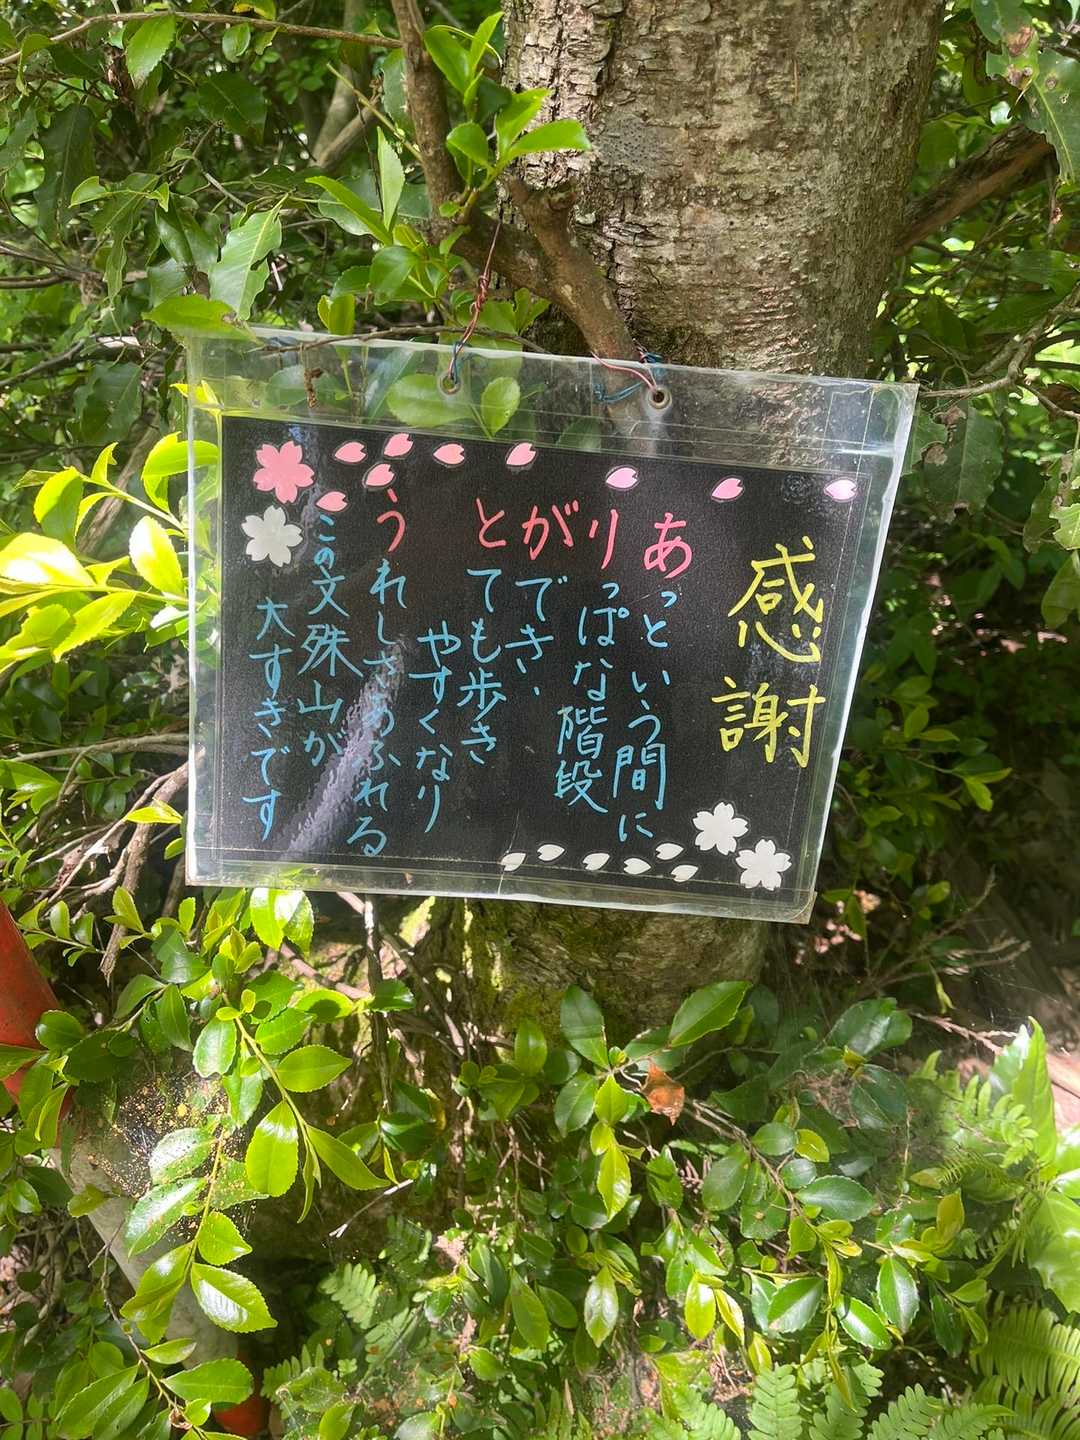 感謝
あっという間に
りっぱな階段
ができ、
とても歩き
やすくなり
うれしさあふれる
この文殊山が
大すきです